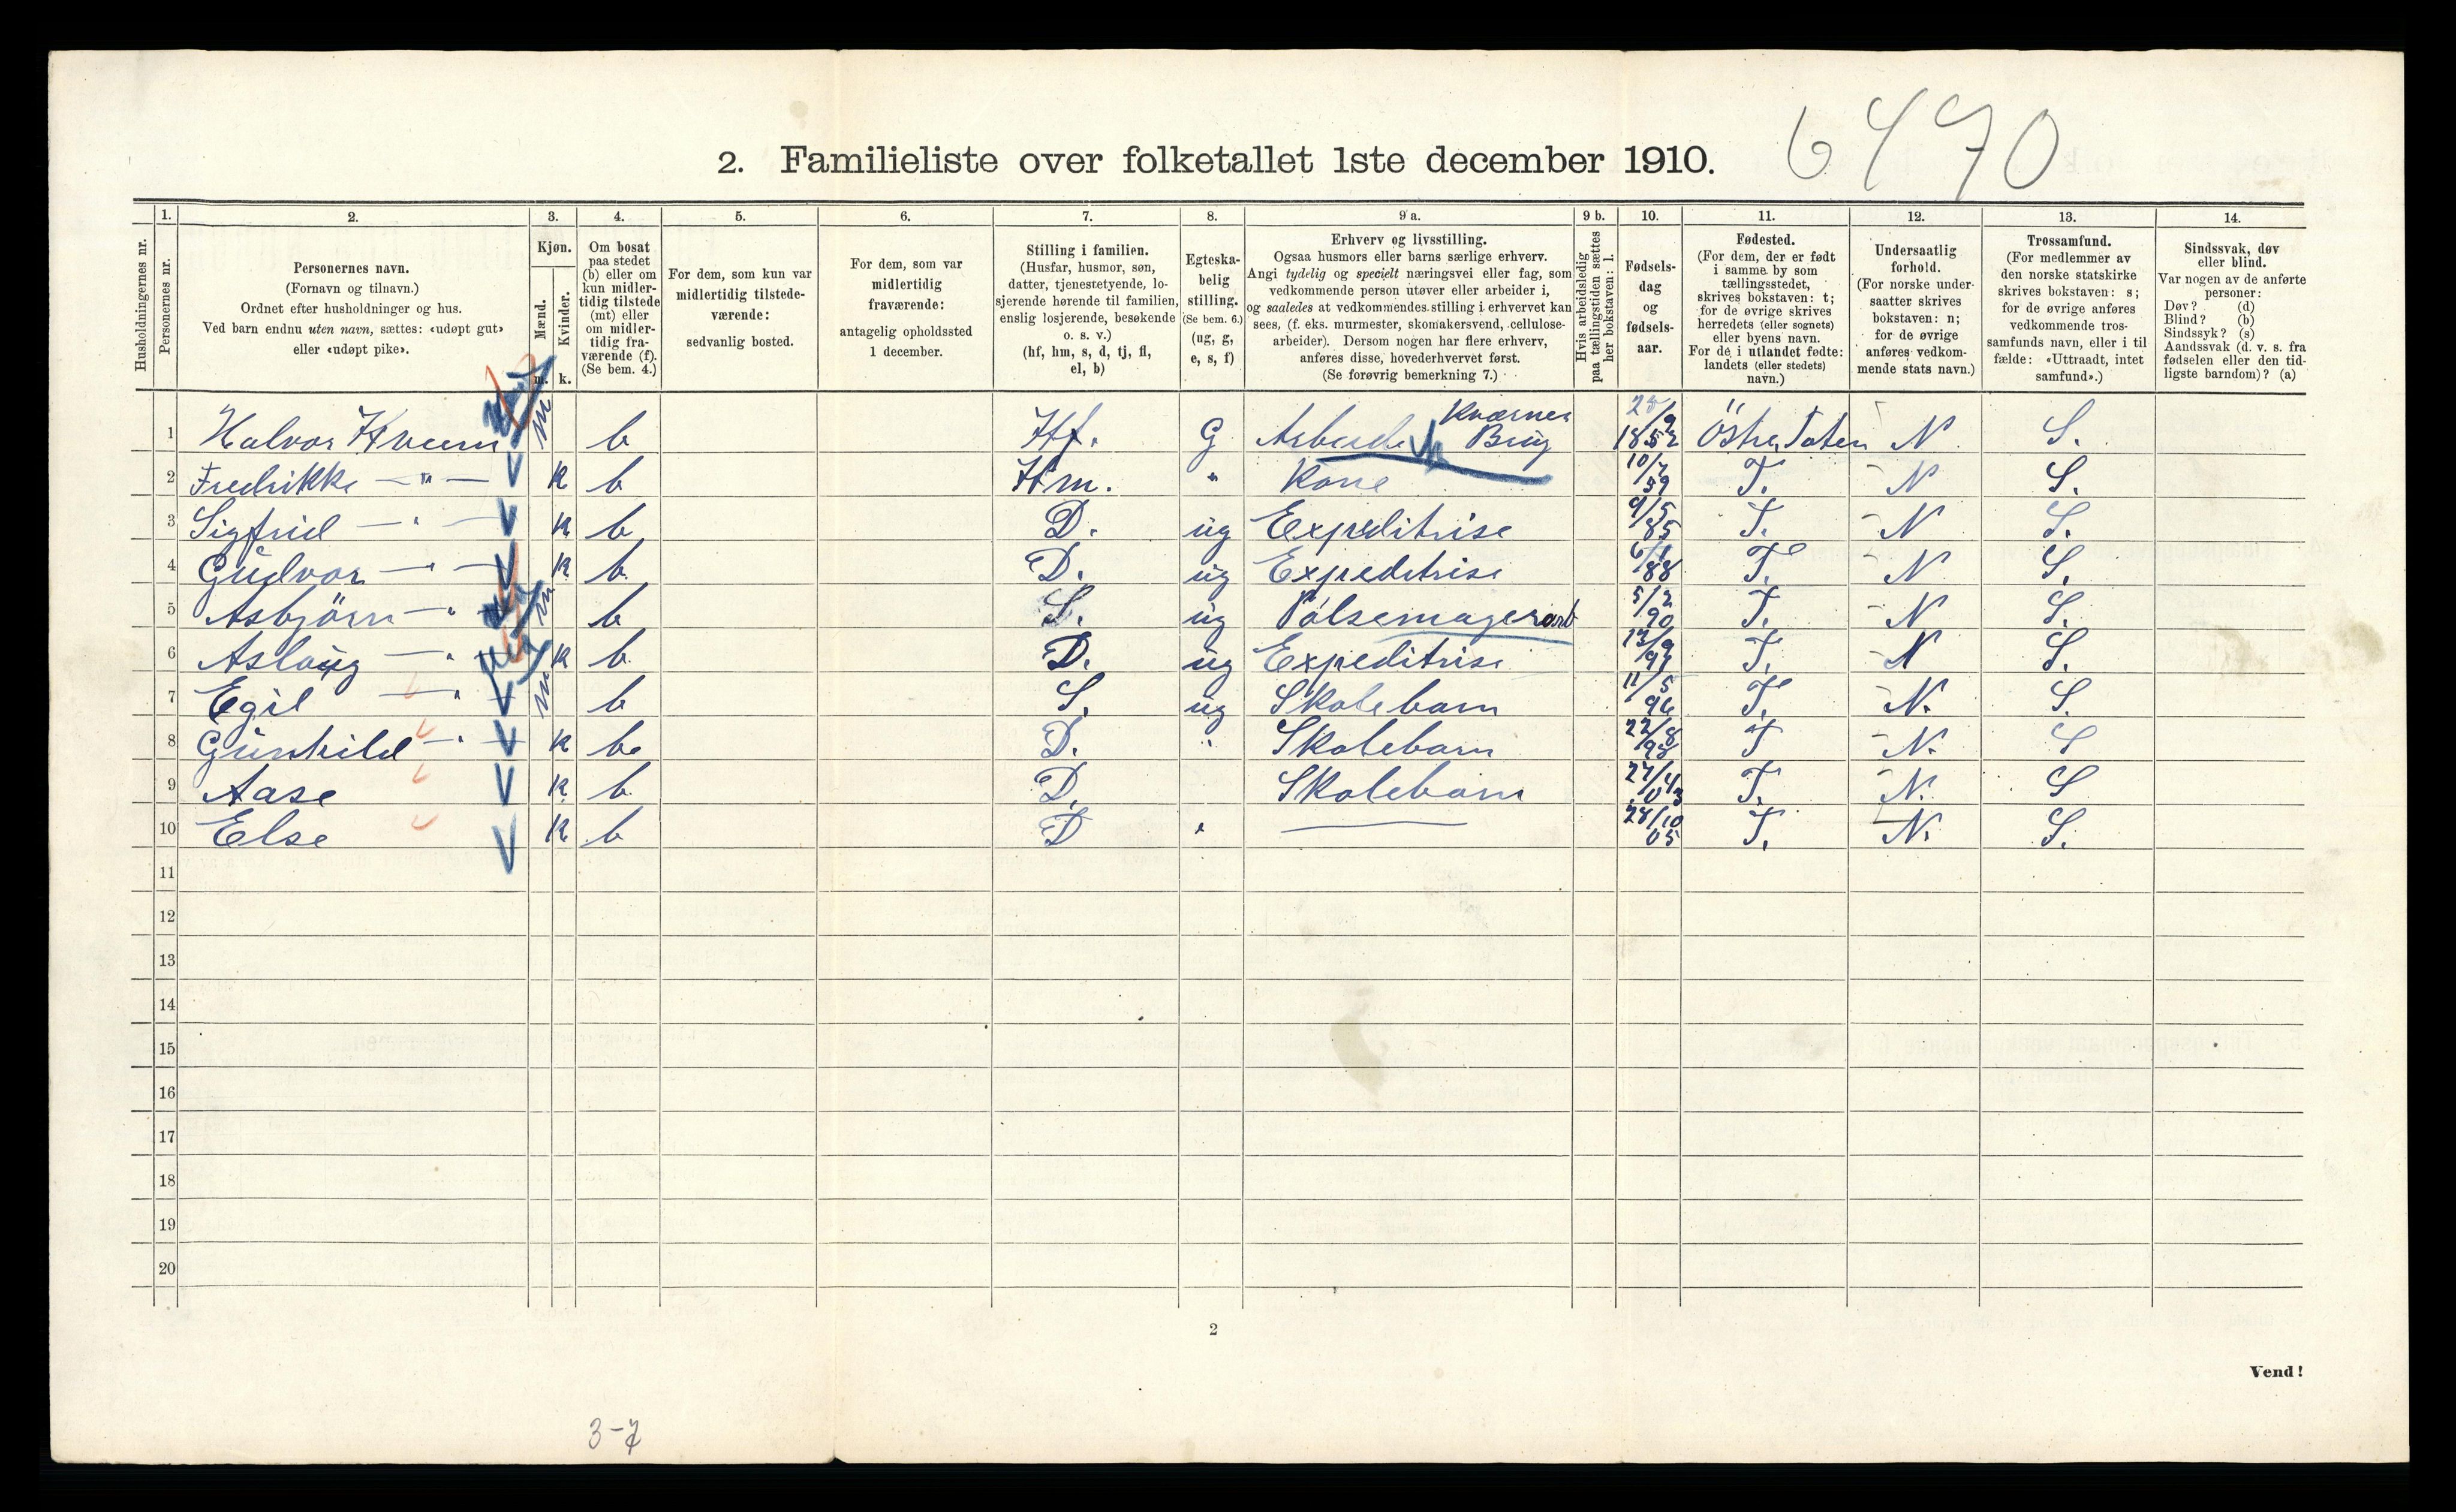 2. Familieliste over folketallet 1ste december 1910. 6470
1. 2. 3. 4. 5. 6. 7. 8. 9 a. 9 b. 10. 11. 12. 13. 14.
Husholdningernes nr.
Personernes nr.
Personernes navn.
(Fornavn og tilnavn.)
Ordnet efter husholdninger og hus.
Ved barn endnu uten navn, sættes: «udøpt gut»
eller «udøpt pike».
Kjøn.
Mænd.
Kvinder.
m. k.
Om bosat
paa stedet
(b) eller om
kun midler-
tidig tilstede
(mt) eller
om midler-
tidig fra-
værende (f).
(Se bem. 4.)
For dem, som kun var
midlertidig tilstede-
værende:
sedvanlig bosted.
For dem, som var
midlertidig
fraværende:
antagelig opholdssted
1 december.
Stilling i familien.
(Husfar, husmor, søn,
datter, tjenestetyende, lo-
sjerende hørende til familien,
enslig losjerende, besøkende
o. s. v.)
(hf, hm, s, d, tj, fl,
el, b)
Egteska-
belig
stilling.
(Se bem. 6.)
(ug, g,
e, s, f)
Erhverv og livsstilling.
Ogsaa husmors eller barns særlige erhverv.
Angi tydelig og specielt næringsvei eller fag, som
vedkommende person utøver eller arbeider i,
og saaledes at vedkommendes stilling i erhvervet kan
sees, (f. eks. murmester, skomakersvend, cellulose-
arbeider). Dersom nogen har flere erhverv,
anføres disse, hovederhvervet først.
(Se forøvrig bemerkning 7.)
Hvis arbeidsledig
paa tællingstiden sættes
her bokstaven: l.
Fødsels-
dag
og
fødsels-
aar.
Fødested.
(For dem, der er født
i samme by som
tællingsstedet,
skrives bokstaven: t;
for de øvrige skrives
herredets (eller sognets)
eller byens navn.
For de i utlandet fødte:
landets (eller stedets)
navn.)
Undersaatlig
forhold.
(For norske under-
saatter skrives
bokstaven: n;
for de øvrige
anføres vedkom-
mende stats navn.)
Trossamfund.
(For medlemmer av
den norske statskirke
skrives bokstaven: s;
for de øvrige anføres
vedkommende tros-
samfunds navn, eller i til
fælde: «Uttraadt, intet
samfund».)
Sindssvak, døv
eller blind.
Var nogen av de anførte
personer:
Døv? (d)
Blind? (b)
Sindssyk? (s)
Aandssvak (d. v. s. fra
fødselen eller den tid-
ligste barndom)? (a)
1 Halvor Kvern m b Hf. G Arbeide Kværner Brug 9 1852 Östre Toten N S.
2 Fredrikke — " — k b Hm. " Kone 10/7 59 T. N S.
3 Sigfrid — " — k b D. ug Expeditrise 9/5 85 T. N S.
4 Gudvor — " — k b. D. ug Expeditrise 88 T. N S.
5 Asbjörn — " — m b S. ug Pölsemagerarb 5/2 90 T. N S.
6 Aslaug — " k b. D. ug Expeditrise 13/9 91 T. N S.
7 Egil — " — m b S. ug Skolebarn 11/5 96 T. N. S.
8 Gunhild — " — k b. D. " Skolebarn 22/8 98 T N. S
9 Aase k b. D. Skolebarn 27/4 03 T. N. S
10 Else k b D " — 28/10 05 T. N. S.
11
12
13
14
15
16
17
18
19
20
2
Vend!
3-7